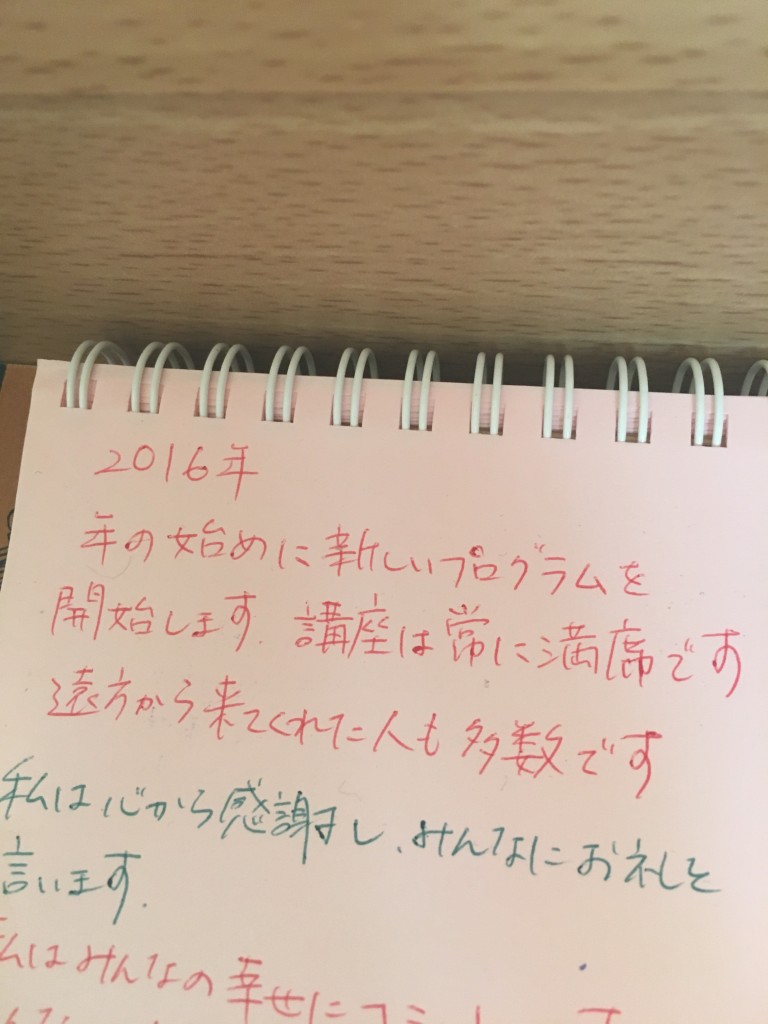 2016年
年の始めに新しいプログラムを
開始します. 講座は常に満席です
遠方から来てくれた人も多数です
私は心から感謝し、みんなにお礼を
言います.
私はみんなの幸せにコミット